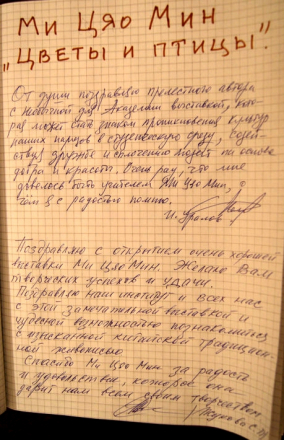 Ми Цяо Мин
„Цветы и птицы".
От души поздравляю прелестного автора
с необычной для Академии выставкой, кото-
рая может стать знаком проникновения культур
наших народов в студенческую среду, содей-
ствуя дружбе и сплочению людей на основе
добра и красоты. Очень рад, что мне
довелось быть учителем Ми Цяо Мин,
чем я с радостью помню.
Поздравляю с открытием очень хорошей
выставки Ми Цяо Мин. Желаю Вам
творческих успехов и удачи.
Поздравляю наш институт и всех нас
с этой замечательной выставкой и
чудесной возможностью познакомиться
с изысканной китайской традицион-
ной живописью
Спасибо Ми Цяо Мин за радость
и удовольствие, которое она
дарит нам всем своим творчеством